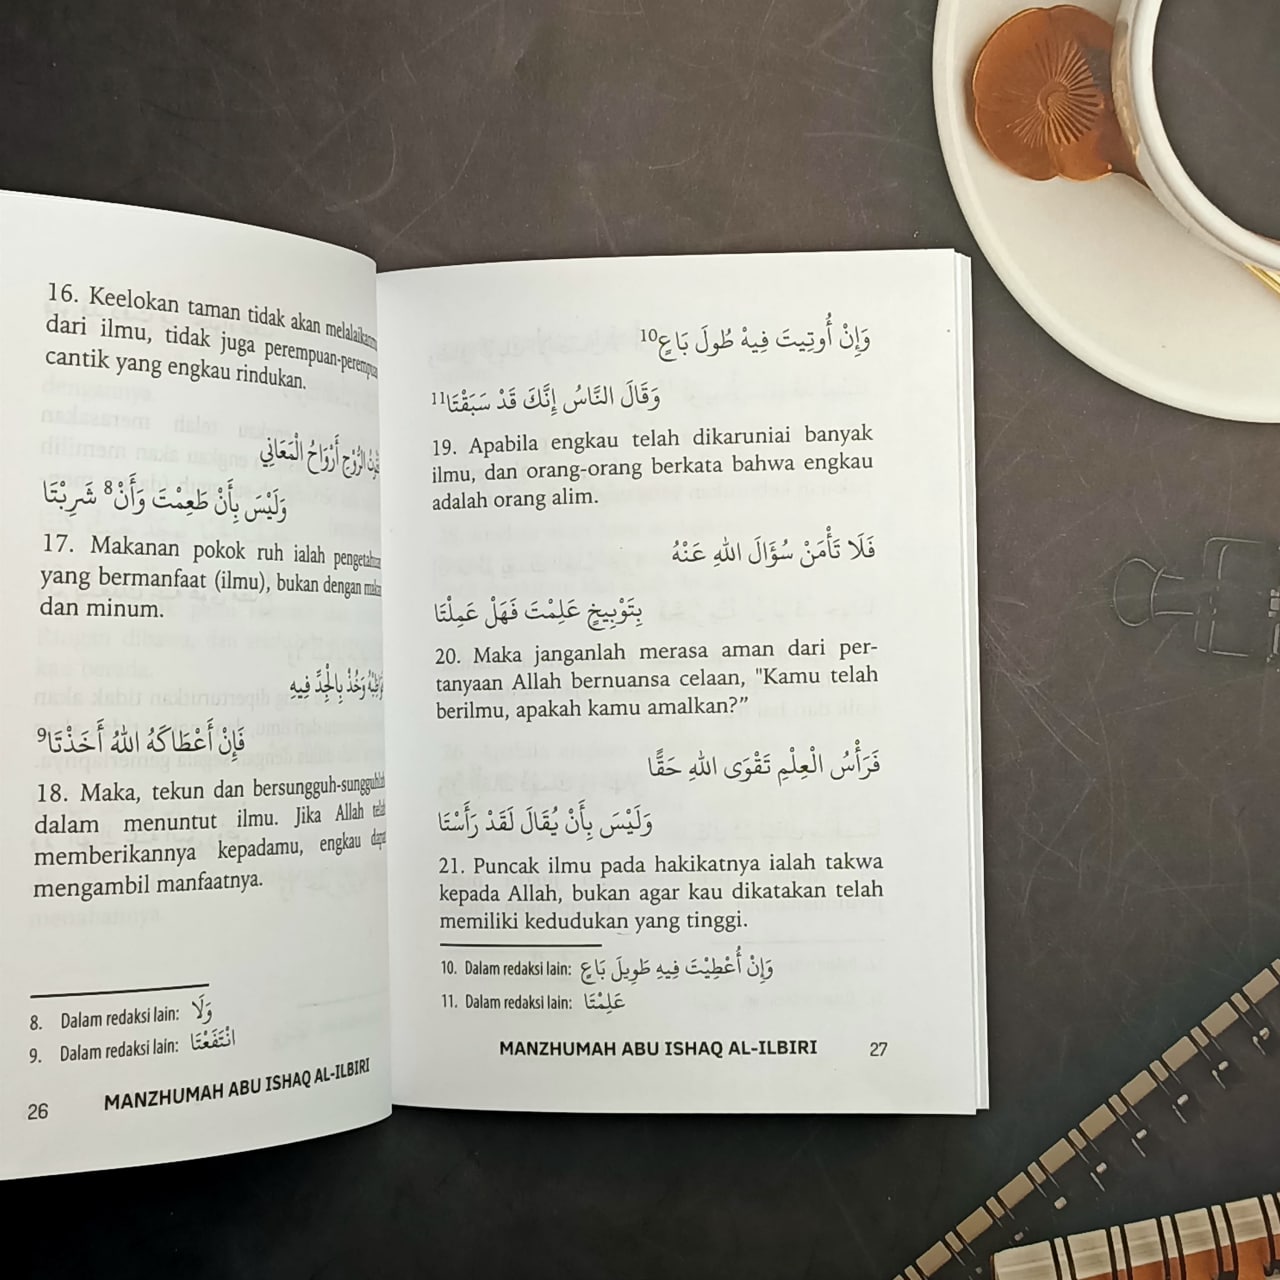 16. Keelokan taman tidak akan melalaikanmu
dari ilmu, tidak juga perempuan-perempuan
cantik yang engkau rindukan.
الرُّوْحِ أَرْوَاحُ الْمَعَانِي
وَلَيْسَ بِأَنْ طَعِمْتَ وَأَنْ8 شَرِبْتَا
17. Makanan pokok ruh ialah pengetahuan
yang bermanfaat (ilmu), bukan dengan makan
dan minum.
وَخُذْ بِالْجِدِّ فِيهِ
فَإِنْ أَعْطَاكَهُ اللهُ أَخَذْتَا9
18. Maka, tekun dan bersungguh-sungguhlah
dalam menuntut ilmu. Jika Allah telah
memberikannya kepadamu, engkau dapat
mengambil manfaatnya.
8. Dalam redaksi lain: وَلَا
9. Dalam redaksi lain: انْتَفَعْتَا
26 MANZHUMAH ABU ISHAQ AL-ILBIRI
وَإِنْ أُوتِيتَ فِيهْ طُولَ بَاعٍ10
وَقَالَ النَّاسُ إِنَّكَ قَدْ سَبَقْتَا11
19. Apabila engkau telah dikaruniai banyak
ilmu, dan orang-orang berkata bahwa engkau
adalah orang alim.
فَلَا تَأْمَنْ سُؤَالَ اللهِ عَنْهُ
بِتَوْبِيخٍ عَلِمْتَ فَهَلْ عَمِلْتَا
20. Maka janganlah merasa aman dari per-
tanyaan Allah bernuansa celaan, "Kamu telah
berilmu, apakah kamu amalkan?”
فَرَأْسُ الْعِلْمِ تَقْوَى اللهِ حَقًّا
وَلَيْسَ بِأَنْ يُقَالَ لَقَدْ رَأَسْتَا
21. Puncak ilmu pada hakikatnya ialah takwa
kepada Allah, bukan agar kau dikatakan telah
memiliki kedudukan yang tinggi.
10. Dalam redaksi lain: وَإِنْ أُعْطِيْتَ فِيهِ طَوِيلَ بَاعٍ
11. Dalam redaksi lain: عَلِمْتَا
MANZHUMAH ABU ISHAQ AL-ILBIRI 27